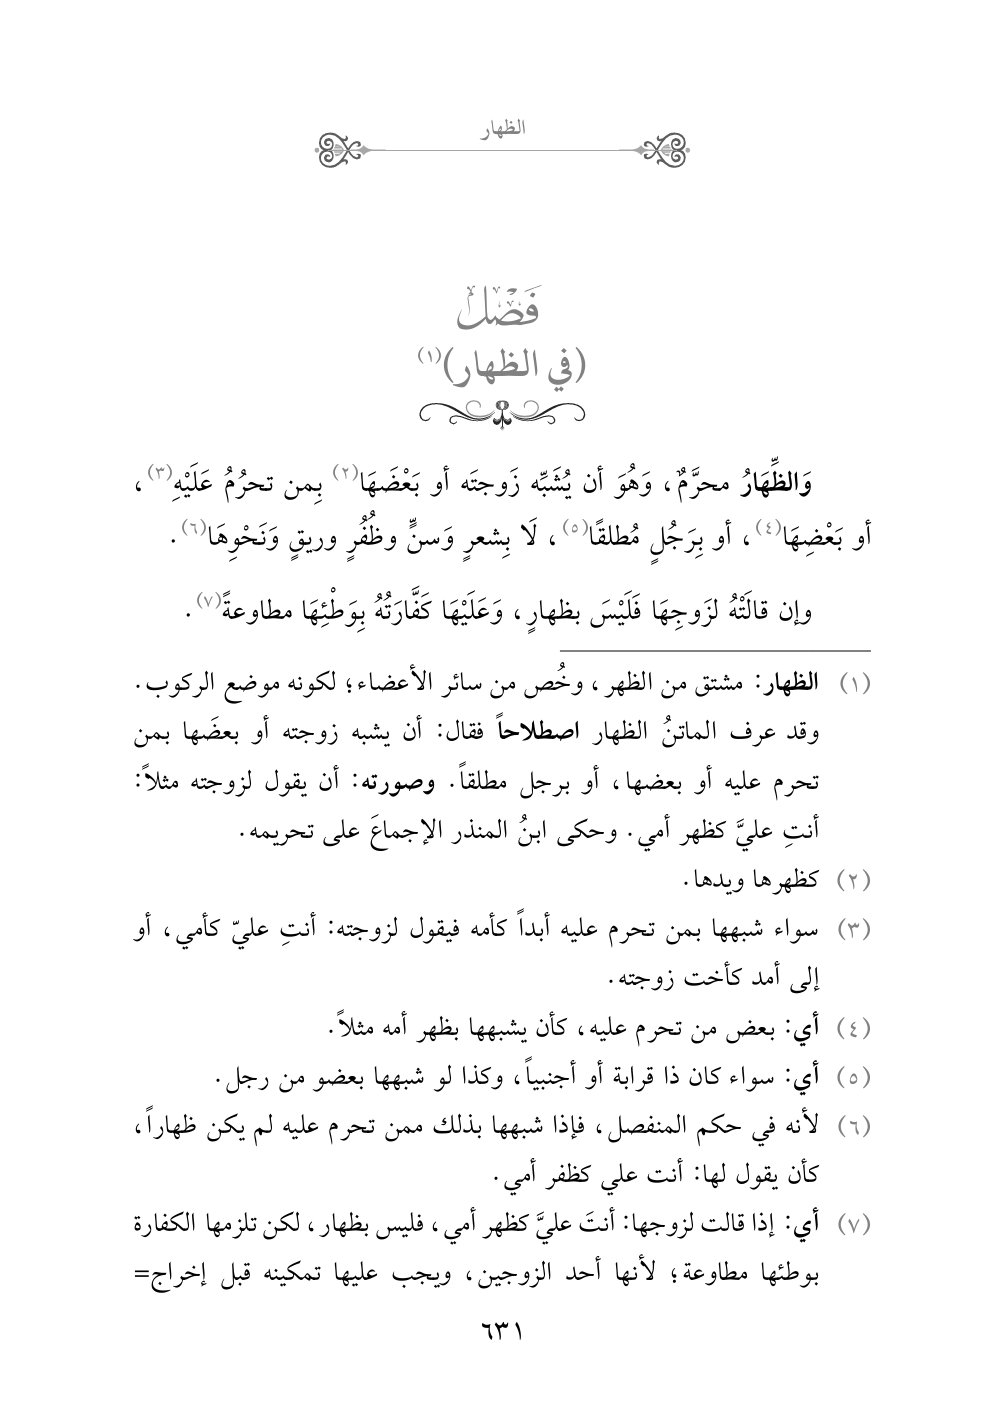 الظهار
فَصْلٌ
(في الظهار)(١)
وَالظِّهَارُ محرَّمٌ، وَهُوَ أن يُشَبِّه زَوجتَه أو بَعْضَهَا(٢) بِمن تحرُمُ عَلَيْهِ(٣)،
أو بَعْضِهَا(٤)، أو بِرَجُلٍ مُطلقًا(٥)، لَا بِشعرٍ وَسنٍّ وظُفُرٍ وريقٍ وَنَحْوِهَا(٦).
وإن قالَتْهُ لزَوجِهَا فَلَيْسَ بظهارٍ، وَعَلَيْهَا كَفَّارَتُهُ بِوَطْئِهَا مطاوعةً(٧).
(١) الظهار: مشتق من الظهر، وخُص من سائر الأعضاء؛ لكونه موضع الركوب.
وقد عرف الماتنُ الظهار اصطلاحاً فقال: أن يشبه زوجته أو بعضَها بمن
تحرم عليه أو بعضها، أو برجل مطلقاً. وصورته: أن يقول لزوجته مثلاً:
أنتِ عليَّ كظهر أمي. وحكى ابنُ المنذر الإجماعَ على تحريمه.
(٢) كظهرها ويدها.
(٣) سواء شبهها بمن تحرم عليه أبداً كأمه فيقول لزوجته: أنتِ عليّ كأمي، أو
إلى أمد كأخت زوجته.
(٤) أي: بعض من تحرم عليه، كأن يشبهها بظهر أمه مثلاً.
(٥) أي: سواء كان ذا قرابة أو أجنبياً، وكذا لو شبهها بعضو من رجل.
(٦) لأنه في حكم المنفصل، فإذا شبهها بذلك ممن تحرم عليه لم يكن ظهاراً،
كأن يقول لها: أنت علي كظفر أمي.
(٧) أي: إذا قالت لزوجها: أنتَ عليَّ كظهر أمي، فليس بظهار، لكن تلزمها الكفارة
بوطئها مطاوعة؛ لأنها أحد الزوجين، ويجب عليها تمكينه قبل إخراج=
٦٣١